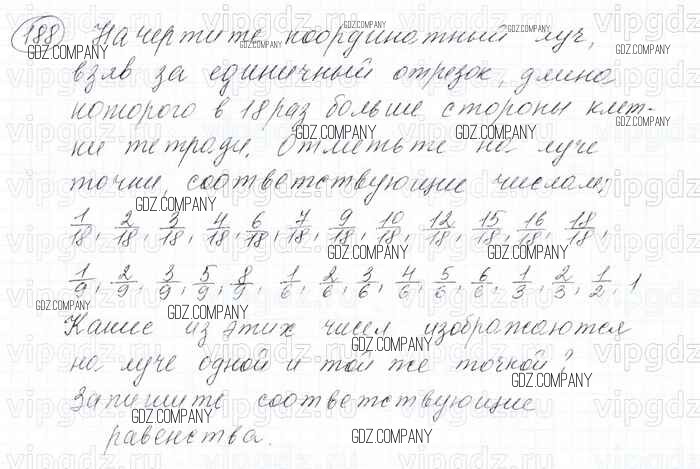 188 Начертите координатный луч,
взяв за единичный отрезок, длина
которого в 18 раз больше стороны клет-
ки тетради. Отметьте на луче
точки, соответствующие числам:
1/18, 2/18, 3/18, 4/18, 6/18, 7/18, 9/18, 10/18, 12/18, 15/18, 16/18, 18/18,
1/9, 2/9, 3/9, 5/9, 8/9, 1/6, 2/6, 3/6, 4/6, 5/6, 6/6, 1/3, 2/3, 1/2, 1
Какие из этих чисел изображаются
на луче одной и той же точкой?
Запишите соответствующие
равенства.
GDZ.COMPANY
vipgdz.ru